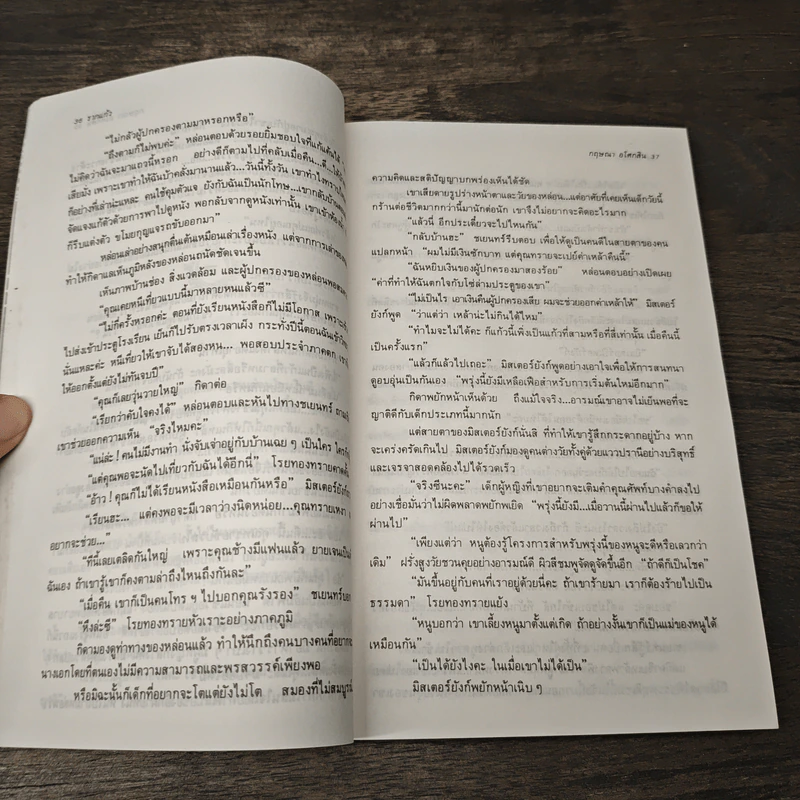 ๓๖ รากแก้ว
“ไม่กลัวผู้ปกครองตามมาหรอกหรือ”
“ถึงตามก็ไม่พบค่ะ” หล่อนตอบด้วยรอยยิ้มชอบใจที่แก้แค้นได้
ไม่คิดว่าฉันจะมาแถวนี้หรอก อย่างดีก็ตามไปที่คลับเมื่อคืน...ดี...ให้
เสียมั่ง เพราะเขาทำให้ฉันบ้าคลั่งมานานแล้ว...วันนี้ทั้งวัน เขาทำไงทราบ
ก็อย่างที่เล่าน่ะแหละ คนใช้คุมตัวแจ ยังกับฉันเป็นนักโทษ...เขากลับบ้าน
จัดแจงแก้ตัวด้วยการพาไปดูหนัง พอกลับจากดูหนังเท่านั้น เขาเข้าห้อง
ก็รีบแต่งตัว ขโมยกุญแจรถขับออกมา”
หล่อนเล่าอย่างสนุกตื่นเต้นเหมือนเล่าเรื่องหนัง แต่จากการเล่า
ทำให้กิดาแลเห็นภูมิหลังของหล่อนถนัดชัดเจนขึ้น
เห็นภาพบ้านช่อง สิ่งแวดล้อม และผู้ปกครองของหล่อน
“คุณเคยหนีเที่ยวแบบนี้มาหลายหนแล้วซี”
“ไม่กี่ครั้งหรอกค่ะ ตอนที่ยังเรียนหนังสือก็ไม่มีโอกาส เพราะ
ไปส่งเข้าประตูโรงเรียน เย็นก็ไปรับตรงเวลาเผง กระทั่งปีนี้ตอนฉันเข้า
นั่นแหละค่ะ หนีเที่ยวให้เขาจับได้สองหน... พอสอบประจำภาคตก เรา
ให้ออกตั้งแต่ยังไม่ทันจบปี”
“คุณก็เลยวุ่นวายใหญ่” กิดาต่อ
“เรียกว่าคับใจคงได้” หล่อนตอบและหันไปทางชเยนทร์ ถาม
เขาช่วยออกความเห็น “จริงไหมคะ”
“แน่ล่ะ! คนไม่มีงานทำ นั่งจับเจ่าอยู่กับบ้านเฉย ๆ เป็นใคร ใคร
“แต่คุณพอจะนัดไปเที่ยวกับฉันได้อีกนี่” โรยทองทราย
“อ้าว! คุณก็ไม่ได้เรียนหนังสือเหมือนกันหรือ” มิสเตอร์ยังก์
“เรียนฮะ... แต่คงพอจะมีเวลาว่างนิดหน่อย...คุณทรายเหงา
อยากจะช่วย...”
“ทีนี้เลยเตลิดกันใหญ่ เพราะคุณช้างมีแฟนแล้ว ยายเจนเป็น
ฉันเอง ถ้าเขารู้เขาก็คงตามล่าถึงไหนถึงกันละ”
“เมื่อคืน เขาก็เป็นคนโทร ฯ ไปบอกคุณรังรอง” ชเยนทร์บอก
“หึงล่ะซี” โรยทองทรายหัวเราะอย่างภาคภูมิ
กิดามองดูท่าทางของหล่อนแล้ว ทำให้นึกถึงคนบางคนที่อยาก
นางเอกโดยที่ตนเองไม่มีความสามารถและพรสวรรค์เพียงพอ
หรือมิฉะนั้นก็เด็กที่อยากจะโตแต่ยังไม่โต สมองที่ไม่สมบูรณ์
กฤษณา อโศกสิน ๓๗
ความคิดและสติปัญญาบกพร่องเห็นได้ชัด
เขาเสียดายรูปร่างหน้าตาและวัยของหล่อน...แต่อาศัยที่เคยเห็นเด็กวัยนี้
กร้านต่อชีวิตมากกว่านี้มานักต่อนัก เขาจึงไม่อยากจะคิดอะไรมาก
“แล้วนี่ อีกประเดี๋ยวจะไปไหนกัน”
“กลับบ้านฮะ” ชเยนทร์รีบตอบ เพื่อให้ดูเป็นคนดีในสายตาของคน
แปลกหน้า “ผมไม่มีเงินซักบาท แต่คุณทรายจะเปย์ค่าเหล้าคืนนี้”
“ฉันหยิบเงินของผู้ปกครองมาสองร้อย” หล่อนตอบอย่างเปิดเผย
“ค่าที่ทำให้ฉันตกใจกับโซ่ล่ามประตูของเขา”
“ไม่เป็นไร เอาเงินคืนผู้ปกครองเสีย ผมจะช่วยออกค่าเหล้าให้” มิสเตอร์
ยังก์พูด “ว่าแต่ว่า เหล้าน่ะไม่กินได้ไหม”
“ทำไมจะไม่ได้คะ ก็แก้วนี้เพิ่งเป็นแก้วที่สามหรือที่สี่เท่านั้น เมื่อคืนนี้
เป็นครั้งแรก”
“แล้วก็แล้วไปเถอะ” มิสเตอร์ยังก์พูดอย่างเอาใจเพื่อให้การสนทนา
ดูอบอุ่นเป็นกันเอง “พรุ่งนี้ยังมีเหลือเฟือสำหรับการเริ่มต้นใหม่อีกมาก”
กิดาพยักหน้าเห็นด้วย ถึงแม้ใจจริง...อารมณ์เขาอาจไม่เย็นพอที่จะ
ญาติดีกับเด็กประเภทนี้มากนัก
แต่สายตาของมิสเตอร์ยังก์นั่นสิ ที่ทำให้เขารู้สึกกระดากอยู่บ้าง หาก
จะเคร่งครัดเกินไป มิสเตอร์ยังก์มองดูคนต่างวัยทั้งคู่ด้วยแววปรานีอย่างบริสุทธิ์
และเจรจาสอดคล้องไปได้รวดเร็ว
“จริงซีนะคะ” เด็กผู้หญิงที่เขาอยากจะเติมคำคุณศัพท์บางคำลงไป
อย่างเชื่อมั่นว่าไม่ผิดพลาดพยักเพยิด “พรุ่งนี้ยังมี...เมื่อวานนี้ผ่านไปแล้วก็ขอให้
ผ่านไป”
“เพียงแต่ว่า หนูต้องรู้โครงการสำหรับพรุ่งนี้ของหนูจะดีหรือเลวกว่า
เดิม” ฝรั่งสูงวัยชวนคุยอย่างอารมณ์ดี ผิวสีชมพูจัดดูจัดขึ้นอีก “ถ้าดีก็เป็นโชค”
“มันขึ้นอยู่กับคนที่เราอยู่ด้วยนี่คะ ถ้าเขาร้ายมา เราก็ต้องร้ายไปเป็น
ธรรมดา” โรยทองทรายแย้ง
“หนูบอกว่า เขาเลี้ยงหนูมาตั้งแต่เกิด ถ้าอย่างงั้นเขาก็เป็นแม่ของหนูได้
เหมือนกัน”
“เป็นได้ยังไงคะ ในเมื่อเขาไม่ได้เป็น”
มิสเตอร์ยังก์พยักหน้าเนิบ ๆ